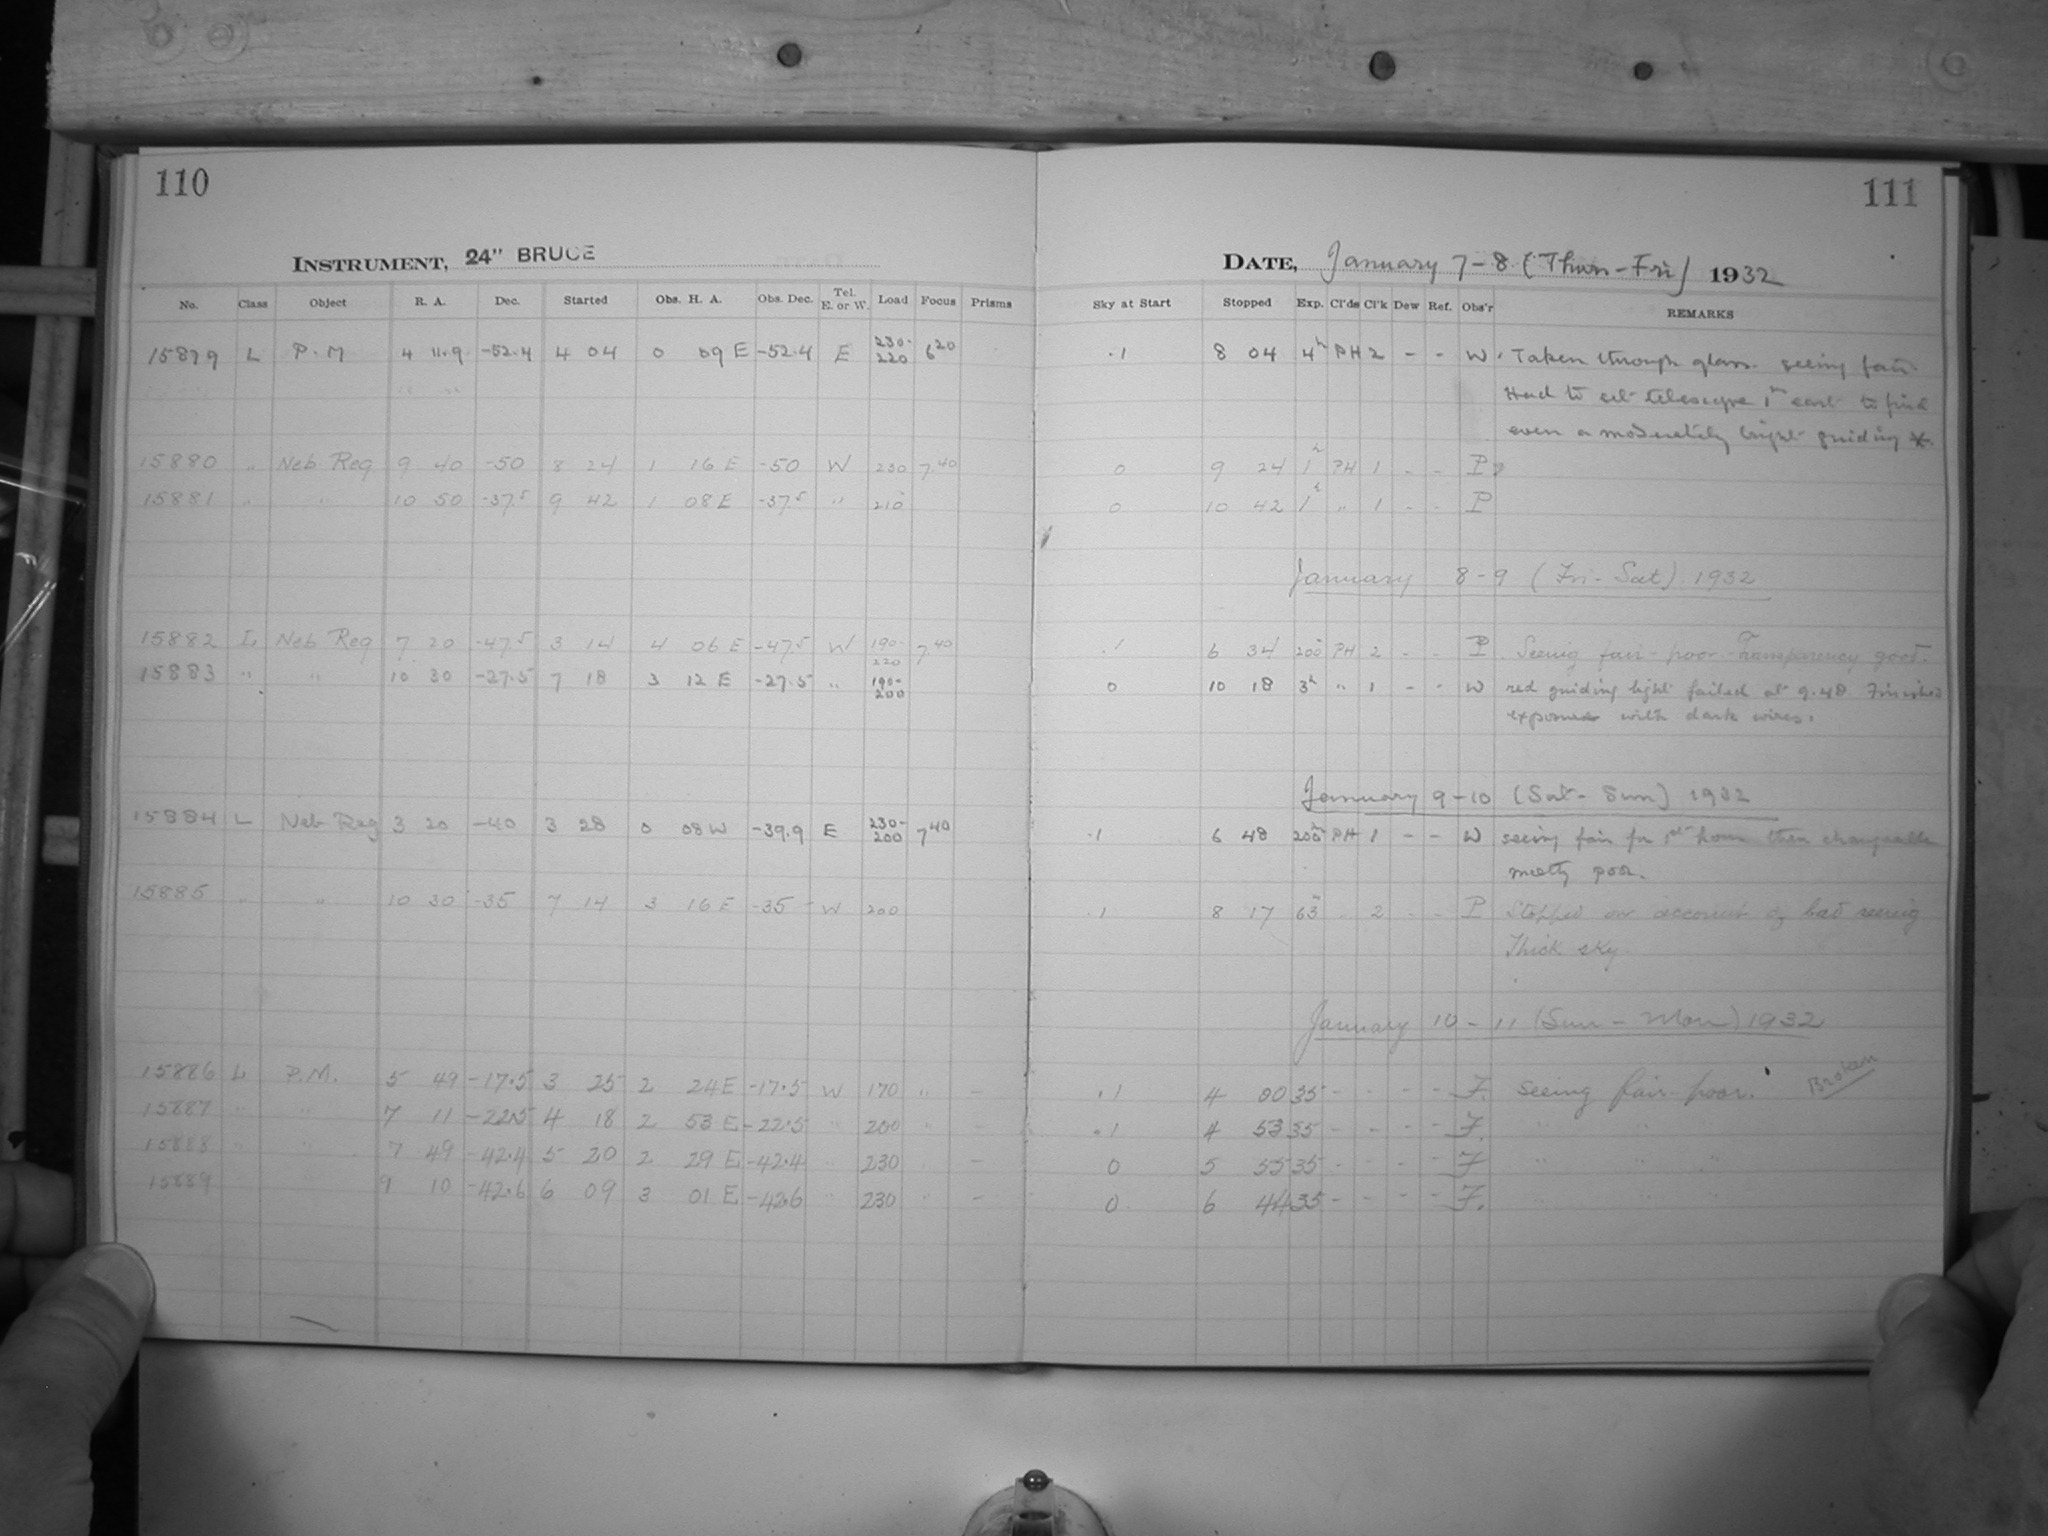 110
111
INSTRUMENT, 24" BRUCE
DATE, January 7-8 (Thurs-Fri) 1932
No. Class Object R. A. Dec. Started Obs. H. A. Obs. Dec. Tel. E. or W. Load Focus Prisms Sky at Start Stopped Exp. Cl'ds Cl'k Dew Ref. Obs'r REMARKS
15879 L P.M 4 11.9 -52.4 4 04 0 09 E -52.4 E 230-220 6 20 .1 8 04 4h PH 2 - - W. Taken through glass. seeing fair
Had to set telescope 1m east to find
even a moderately bright guiding *.
15880 " Neb Reg 9 40 -50 8 24 1 16 E -50 W 230 7 40 0 9 24 1h PH 1 - - P
15881 " " 10 50 -37.5 9 42 1 08 E -37.5 " 210 0 10 42 1h " 1 - - P
January 8-9 (Fri-Sat) 1932
15882 L Neb Reg 7 20 -47.5 3 14 4 06 E -47.5 W 190-220 7 40 .1 6 34 200m PH 2 - - P. Seeing fair-poor Transparency good.
15883 " " 10 30 -27.5 7 18 3 12 E -27.5 " 190-200 0 10 18 3h " 1 - - W red guiding light failed at 9.48 Finished
exposure with dark wires.
January 9-10 (Sat-Sun) 1932
15884 L Neb Reg 3 20 -40 3 28 0 08 W -39.9 E 230-200 7 40 .1 6 48 200m PH 1 - - W seeing fair for 1st hour then changeable
mostly poor.
15885 " " 10 30 -35 7 14 3 16 E -35 W 200 .1 8 17 63m " 2 - - P Stopped on account of bad seeing
Thick sky.
January 10-11 (Sun-Mon) 1932
15886 L P.M. 5 49 -17.5 3 25 2 24 E -17.5 W 170 " - .1 4 00 35 - - - - F. Seeing fair-poor. Broken
15887 " " 7 11 -22.5 4 18 2 53 E -22.5 " 200 " - .1 4 53 35 - - - - F. " "
15888 " " 7 49 -42.4 5 20 2 29 E -42.4 " 230 " - 0 5 55 35 - - - - F " " "
15889 9 10 -42.6 6 09 3 01 E -42.6 " 230 " - 0 6 44 35 - - - - F. " "